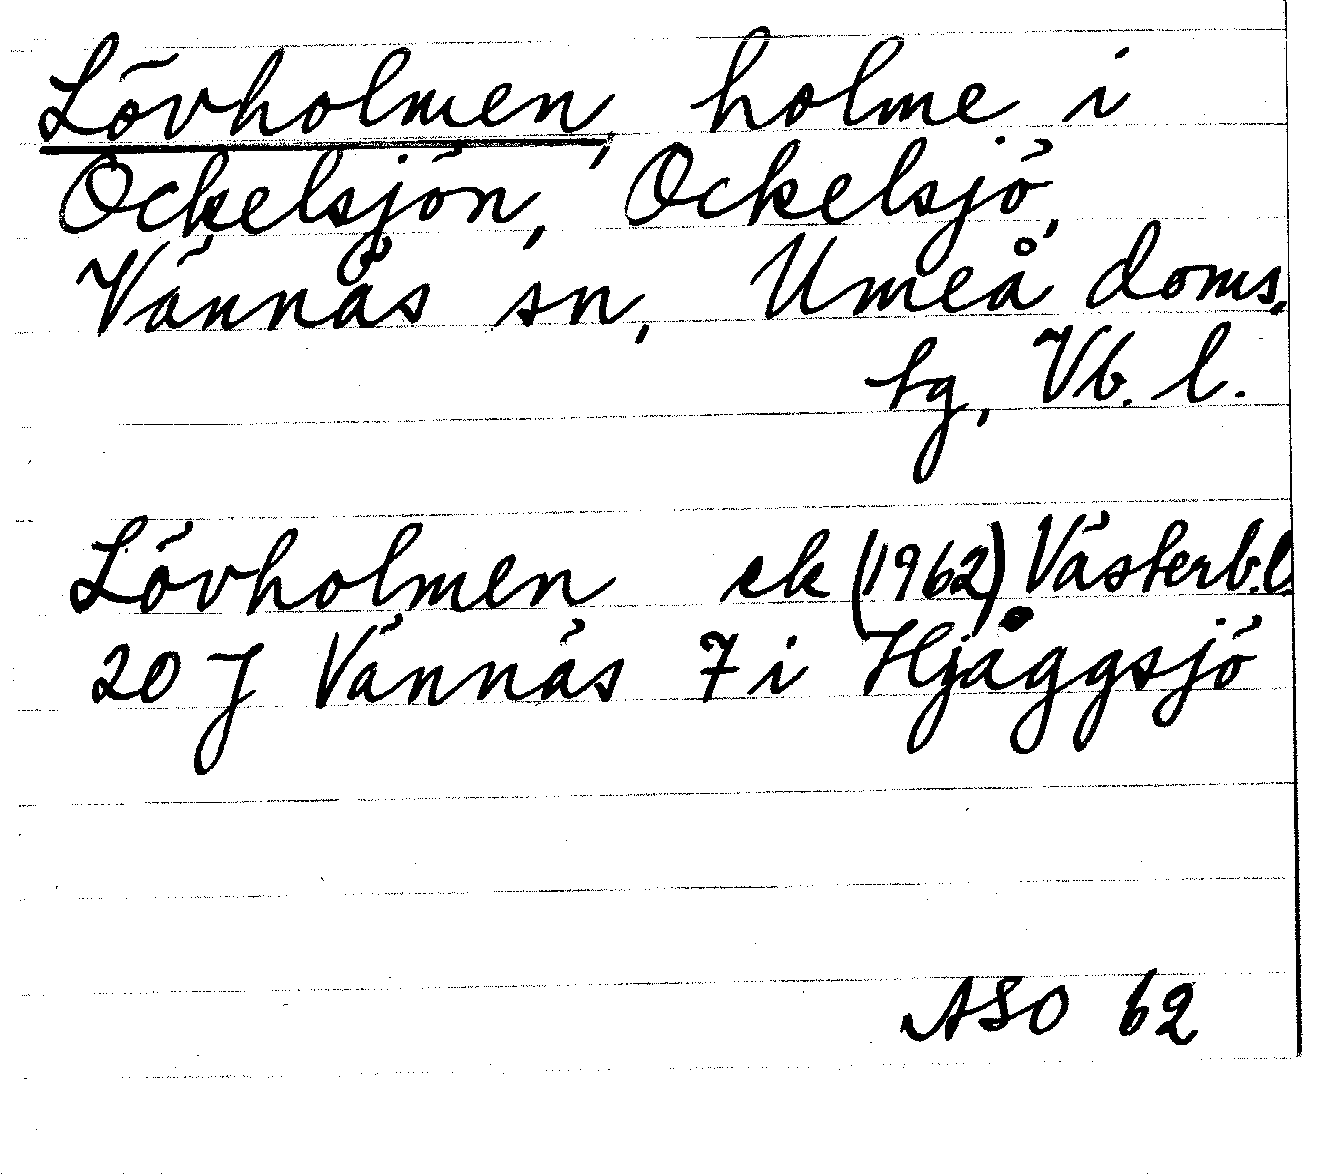 Lövholmen, holme i
Ockelsjön, Ockelsjö,
Vännäs sn, Umeå doms.
hg, Vb. l.
Lövholmen ek (1962) Västerb.l.
20 J Vännäs 7 i Hjåggsjö
ASO 62